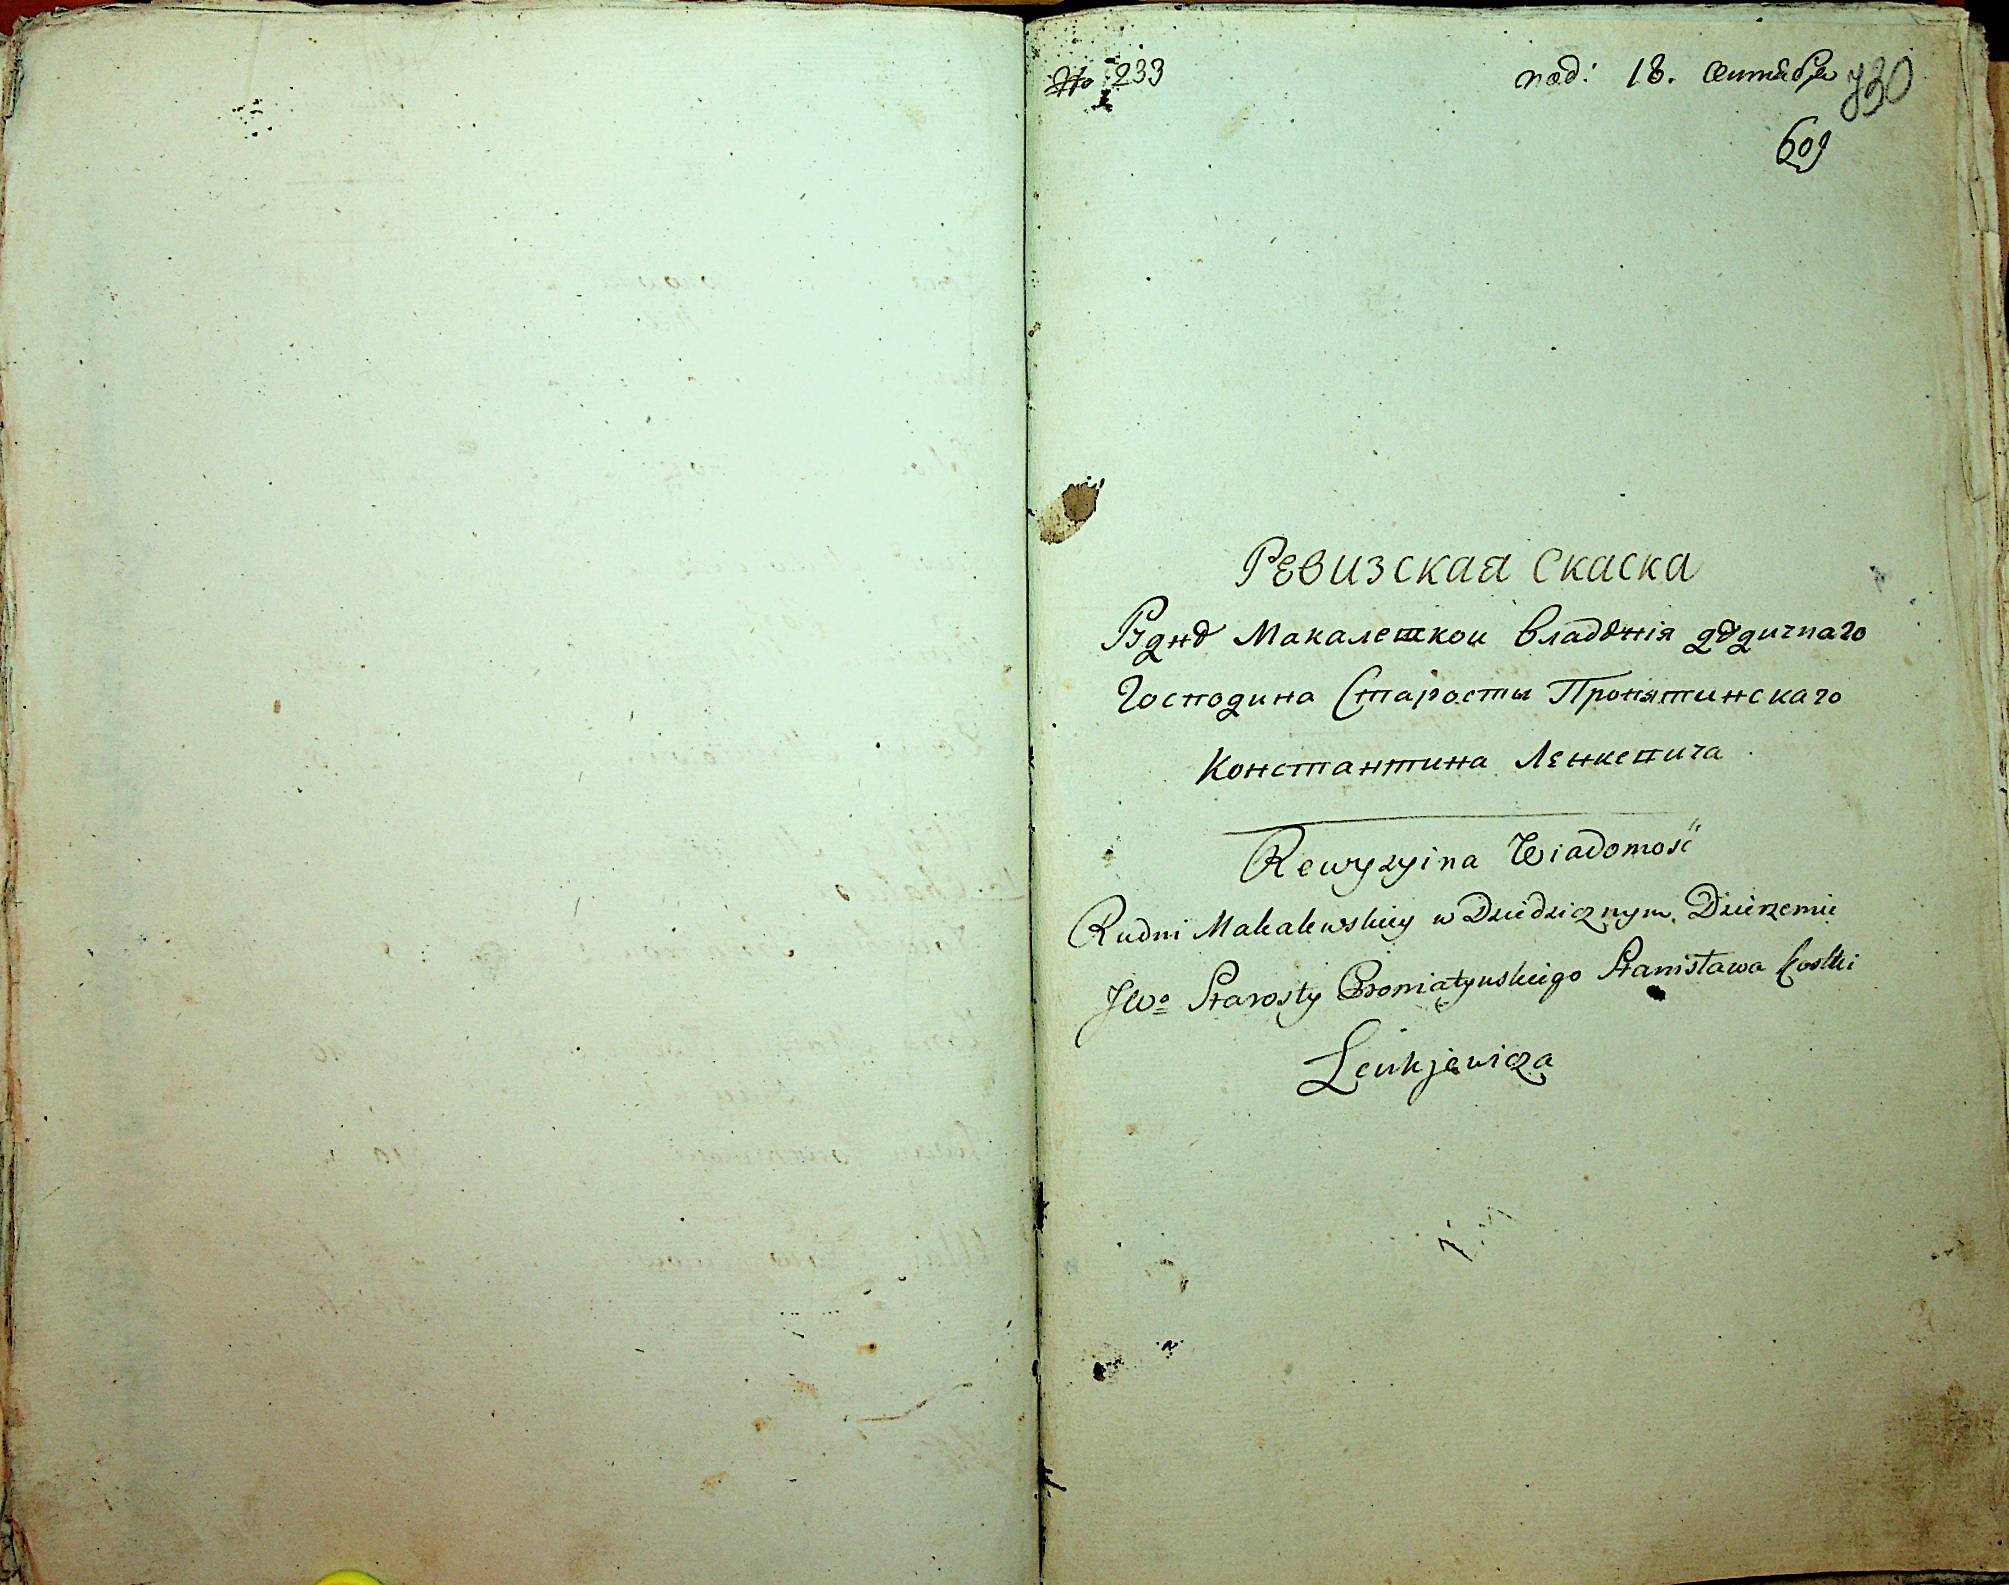 № 233
под: 18. Сентября 730
609
Ревизская Скаска
Рудне Макалевской владенія дедичнаго
Господина Старосты Пронятинскаго
Константина Ленкевича
Rewyzyina Wiadomość
Rudni Makalewskiey w Dziedzicznym Dzierzemie
JWo Starosty Proniatynskiego Stanisława Kostki
Lenkjewicza